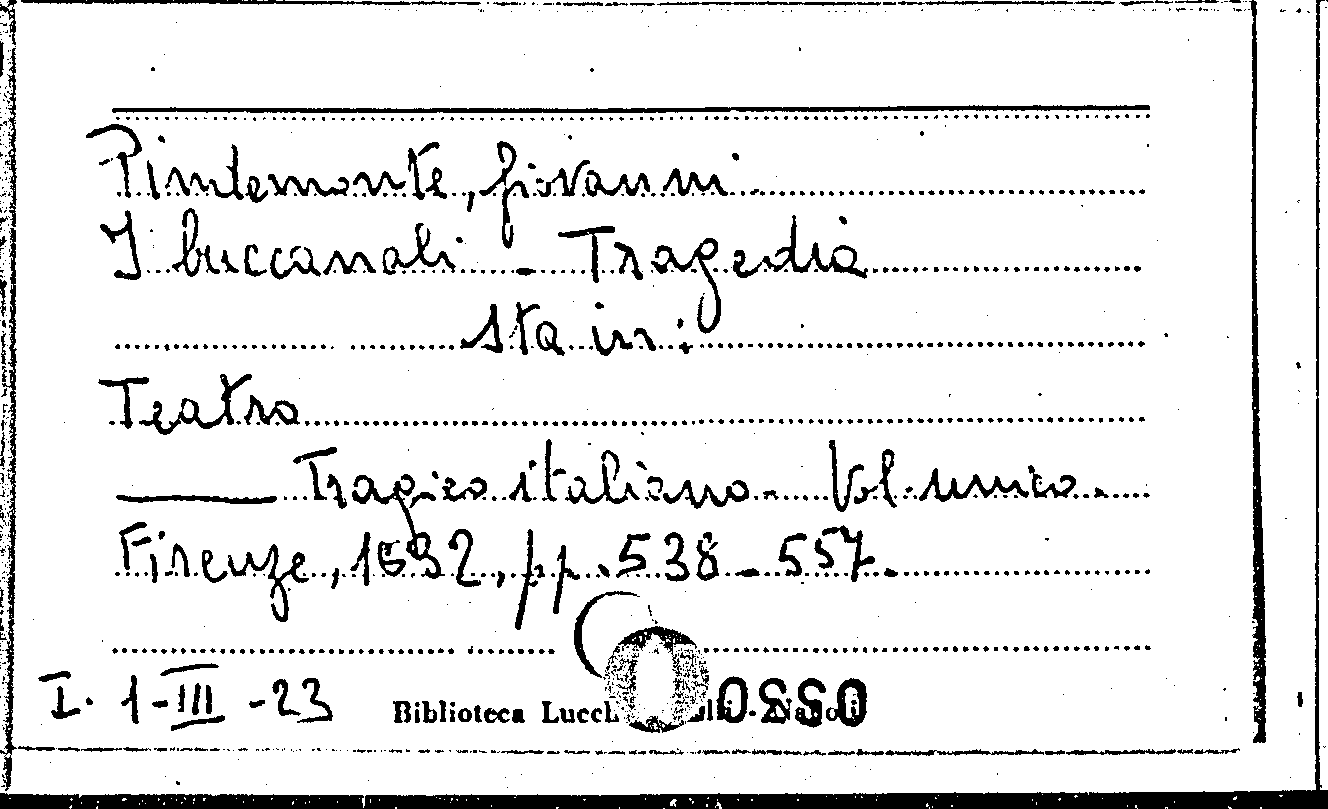 Pindemonte, Giovanni
I buccanali - Tragedia
Sta in:
Teatro
——— Tragico italiano - Vol. unico.
Firenze, 1832, pp. 538 - 557.
I. 1-III-23
Biblioteca